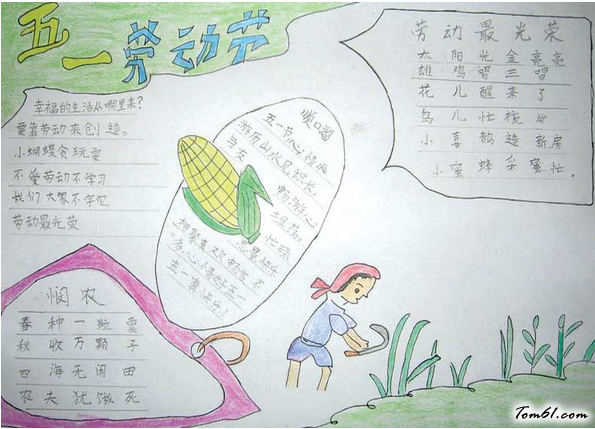 五一劳动节
幸福的生活从哪里来?
要靠劳动来创造。
小蝴蝶贪玩耍
不爱劳动不学习
我们大家不学它
劳动最光荣
顺口溜
五一节心情
游历山水见识长
忙碌
五一 快乐!
劳动最光荣
太阳光金亮亮
雄鸡唱三唱
花儿醒来了
鸟儿忙梳妆
小喜鹊造新房
小蜜蜂采蜜忙。
悯农
春种一粒粟
秋收万颗子
四海无闲田
农夫犹饿死
Tom61.com